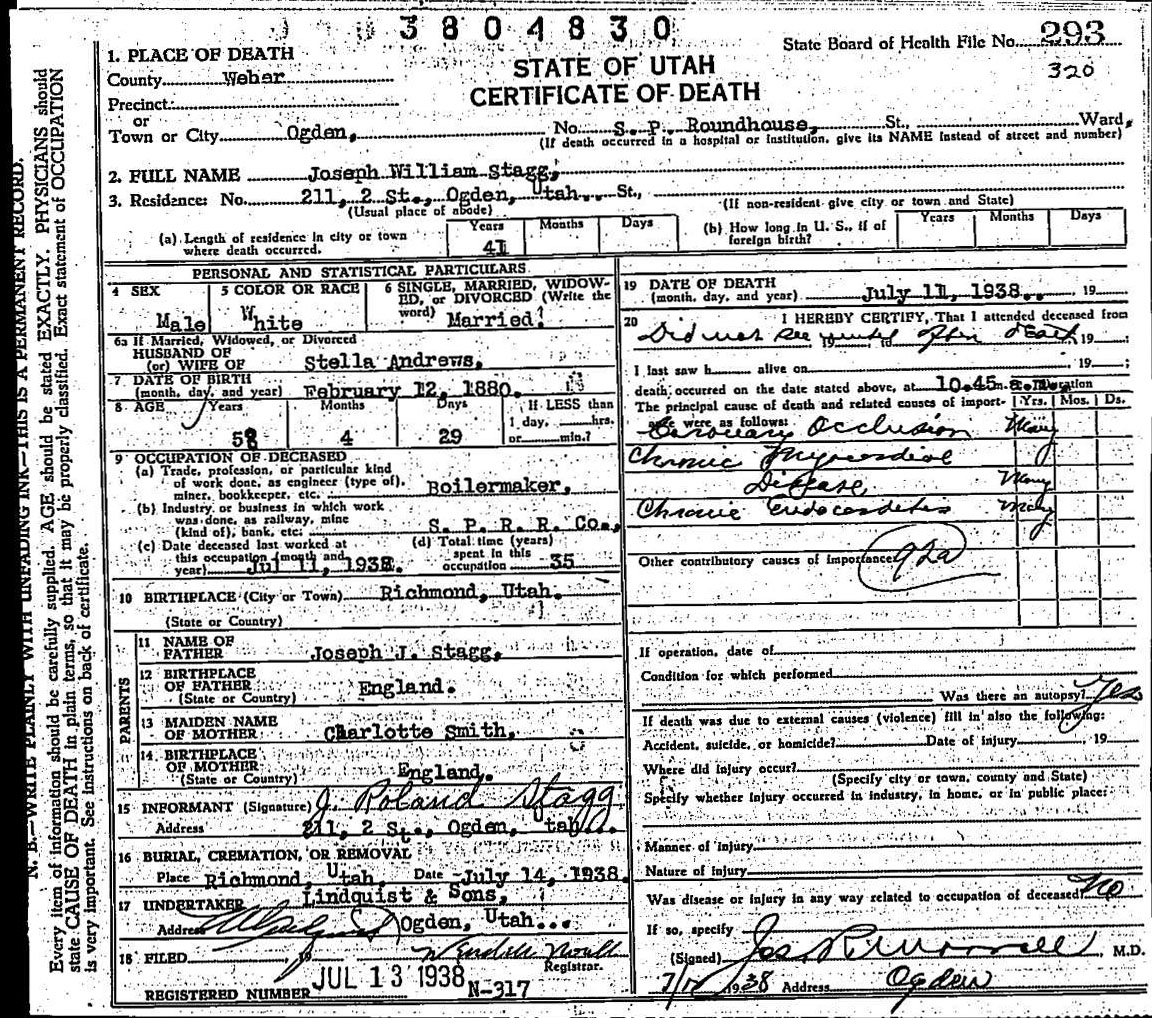 3804830
State Board of Health File No. 293
320
STATE OF UTAH
CERTIFICATE OF DEATH
1. PLACE OF DEATH
County Weber
Precinct
or
Town or City Ogden, No. S. P. Roundhouse, St., Ward,
(If death occurred in a hospital or institution, give its NAME instead of street and number)
2. FULL NAME Joseph William Stagg,
3. Residence: No. 211, 2 St., Ogden, Utah... St.,
(Usual place of abode) (If non-resident give city or town and State)
(a) Length of residence in city or town where death occurred. Years 41 Months Days
(b) How long in U. S., if of foreign birth? Years Months Days
PERSONAL AND STATISTICAL PARTICULARS
4 SEX Male
5 COLOR OR RACE White
6 SINGLE, MARRIED, WIDOWED, or DIVORCED (Write the word) Married!
6a If Married, Widowed, or Divorced
HUSBAND OF
(or) WIFE OF Stella Andrews,
7 DATE OF BIRTH
(month, day, and year) February 12, 1880.
8 AGE Years 58 Months 4 Days 29 If LESS than 1 day, hrs. or min.?
9 OCCUPATION OF DECEASED
(a) Trade, profession, or particular kind
of work done, as engineer (type of),
miner, bookkeeper, etc. Boilermaker,
(b) Industry or business in which work
was done, as railway, mine
(kind of), bank, etc. S. P. R. R. Co.,
(c) Date deceased last worked at
this occupation (month and
year) Jul 11, 1938.
(d) Total time (years)
spent in this
occupation 35
10 BIRTHPLACE (City or Town) Richmond, Utah.
(State or Country)
PARENTS
11 NAME OF
FATHER Joseph J. Stagg,
12 BIRTHPLACE
OF FATHER England.
(State or Country)
13 MAIDEN NAME
OF MOTHER Charlotte Smith,
14 BIRTHPLACE
OF MOTHER
(State or Country) England.
15 INFORMANT (Signature) J. Roland Stagg
Address 211, 2 St., Ogden, Utah...
16 BURIAL, CREMATION, OR REMOVAL
Place Richmond, Utah, Date July 14, 1938.
17 UNDERTAKER Lindquist & Sons,
Address Ogden, Utah...
18 FILED 19
Registrar.
JUL 13 1938
REGISTERED NUMBER N-317
19 DATE OF DEATH
(month, day, and year) July 11, 1938.. 19
20 I HEREBY CERTIFY, That I attended deceased from
Did not see until after death 19
I last saw h alive on 19
death occurred on the date stated above, at 10.45 a.m. Duration
The principal cause of death and related causes of import- Yrs. Mos. Ds.
ance were as follows:
Coronary Occlusion Many
Chronic Myocardial
Disease Many
Chronic Endocarditis Many
Other contributory causes of importance 92a
If operation, date of
Condition for which performed
Was there an autopsy? Yes
If death was due to external causes (violence) fill in also the following:
Accident, suicide, or homicide? Date of injury , 19
Where did injury occur?
(Specify city or town, county and State)
Specify whether injury occurred in industry, in home, or in public place:
Manner of injury
Nature of injury
Was disease or injury in any way related to occupation of deceased? No
If so, specify
(Signed) Jos. R. Morrell M.D.
1938 Address Ogden
N. B.—WRITE PLAINLY WITH UNFADING INK—THIS IS A PERMANENT RECORD.
Every item of information should be carefully supplied. AGE should be stated EXACTLY. PHYSICIANS should
state CAUSE OF DEATH in plain terms, so that it may be properly classified. Exact statement of OCCUPATION
is very important. See instructions on back of certificate.